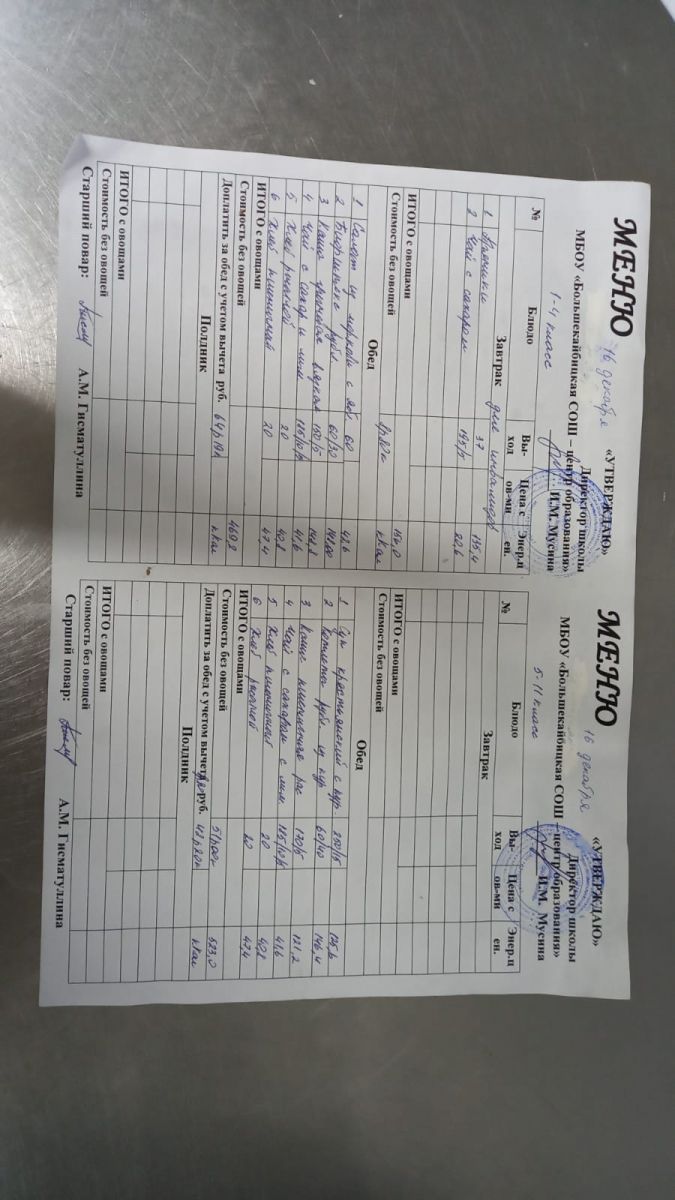 МЕНЮ 16 декабря «УТВЕРЖДАЮ»
Директор школы
И.М. Мусина
МБОУ «Большекайбицкая СОШ – центр образования»
1-4 класс
№ Блюдо Вы-ход Цена с ов-ми Энер.ц ен.
Завтрак для инвалидов
1 37 135,4
2 Чай с сахаром 195/5 20,6
ИТОГО с овощами 156,0
Стоимость без овощей ккал
Обед
1 Салат из моркови с яб 60 42,6
2 рубл. 60/30
3 Каша гречневая вязкая 150/5 141,8
4 Чай с сахар и лим 185/10/5 41,6
5 Хлеб ржаной 20 40,8
6 Хлеб пшеничный 20 47,4
ИТОГО с овощами
Стоимость без овощей 460,2
Доплатить за обед с учетом вычета руб. 64р19к ккал
Полдник
ИТОГО с овощами
Стоимость без овощей
Старший повар: А.М. Гисматуллина
МЕНЮ 16 декабря «УТВЕРЖДАЮ»
Директор школы
И.М. Мусина
МБОУ «Большекайбицкая СОШ – центр образования»
5-11 класс
№ Блюдо Вы-ход Цена с ов-ми Энер.ц ен.
Завтрак
ИТОГО с овощами
Стоимость без овощей
Обед
1 Суп крестьянский с кур 250/15 125,6
2 Котлета руб. из кур 60/40 146,4
3 Каша пшеничная рас 170/5 121,2
4 Чай с сахаром с лим. 185/10/5 41,6
5 Хлеб пшеничный 20 40,8
6 Хлеб ржаной 20 47,4
ИТОГО с овощами
Стоимость без овощей 523,0
Доплатить за обед с учетом вычета руб. ккал
Полдник
ИТОГО с овощами
Стоимость без овощей
Старший повар: А.М. Гисматуллина